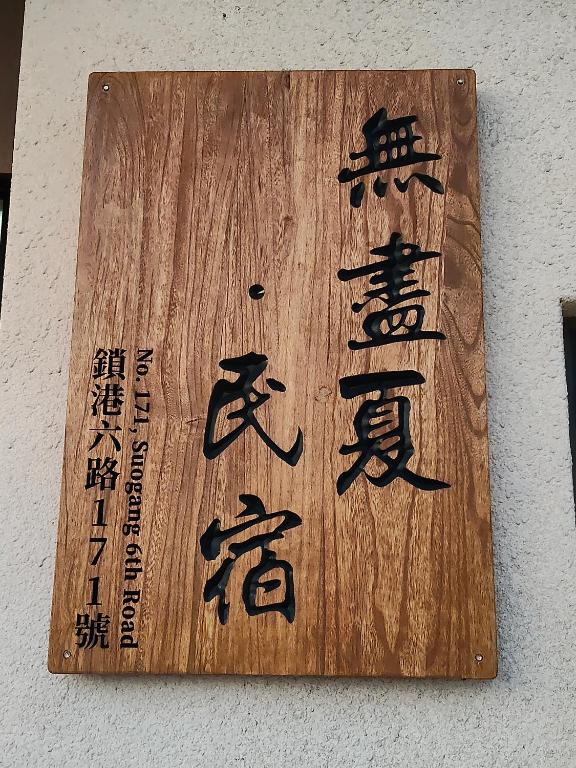 無盡夏
·民宿
No. 171, Suogang 6th Road
鎖港六路171號